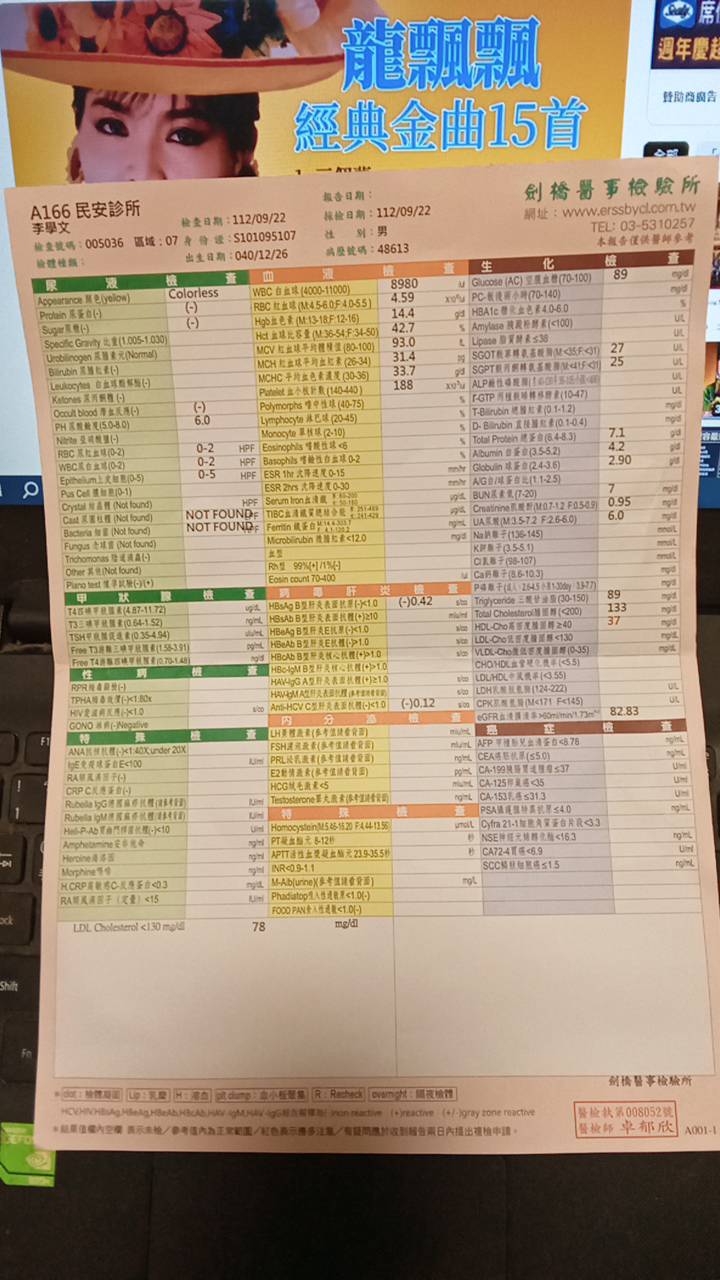 龍飄飄
經典金曲15首
Sealy
席
週年慶超
贊助商廣告
A166 民安診所
李學文
檢查號碼：005036 區域：07 身份證：S101095107
檢體種類：
檢查日期：112/09/22
出生日期：040/12/26
報告日期：
採檢日期：112/09/22
性 別：男
病歷號碼：48613
劍橋醫事檢驗所
網址：www.erssbycl.com.tw
TEL: 03-5310257
本報告僅供醫師參考
尿液檢查
Appearance 顏色(yellow) Colorless
Protein 尿蛋白(-) (-)
Sugar 尿糖(-) (-)
Specific Gravity 比重(1.005-1.030)
Urobilinogen 尿膽素元(Normal)
Bilirubin 尿膽紅素(-)
Leukocytes 白血球酯解酶(-)
Ketones 尿丙酮體(-)
Occult blood 潛血反應(-) (-)
PH 尿酸鹼度(5.0-8.0) 6.0
Nitrite 亞硝酸鹽(-)
RBC 尿紅血球(0-2) 0-2 HPF
WBC 尿白血球(0-2) 0-2 HPF
Epithelium 上皮細胞(0-5) 0-5 HPF
Pus Cell 膿細胞(0-1)
Crystal 結晶體 (Not found) HPF
Cast 尿圓柱體 (Not found) NOT FOUND
Bacteria 細菌 (Not found) NOT FOUND HPF
Fungus 念球菌 (Not found)
Trichomonas 陰道滴蟲(-)
Other 其他(Not found)
Plano test 懷孕試驗(-)/(+)
甲狀腺檢查
T4 四碘甲狀腺素(4.87-11.72) ug/dL
T3 三碘甲狀腺素(0.64-1.52) ng/mL
TSH 甲狀腺促進素(0.35-4.94) uIu/mL
Free T3 游離三碘甲狀腺素(1.58-3.91) pg/mL
Free T4 游離四碘甲狀腺素(0.70-1.48) ng/dl
性病檢查
RPR 梅毒篩檢(-)
TPHA 梅毒效價(-)<1:80x
HIV 愛滋病反應(-)<1.0 s/co
GONO 淋病(-)Negative
特殊檢查
ANA 抗核抗體(-)<1:40X;under 20X
IgE 免疫球蛋白E<100 IU/ml
RA 類風濕因子(-)
CRP C反應蛋白(-)
Rubella IgG 德國麻疹抗體(請參考背面) IU/ml
Rubella IgM 德國麻疹抗體(請參考背面) IU/ml
Heli-P-Ab 胃幽門桿菌抗體(-)<10 U/ml
Amphetamine 安非他命 ng/ml
Heroine 海洛因 ng/ml
Morphine 嗎啡 ng/ml
H.CRP 高敏感C-反應蛋白<0.3 mg/dL
RA 類風濕因子 (定量) <15 IU/ml
LDL Cholesterol <130 mg/dl 78 mg/dl
血液檢查
WBC 白血球 (4000-11000) 8980 /ul
RBC 紅血球(M:4.5-6.0;F:4.0-5.5) 4.59
Hgb 血色素 (M:13-18;F:12-16) 14.4 g/dl
Hct 血球比容量 (M:36-54;F:34-50) 42.7 %
MCV 紅血球平均體積值 (80-100) 93.0 fL
MCH 紅血球平均血紅素 (26-34) 31.4 pg
MCHC 平均血色素濃度 (30-36) 33.7 g/dl
Platelet 血小板計數 (140-440) 188
Polymorphs 嗜中性球 (40-75) %
Lymphocyte 淋巴球 (20-45) %
Monocyte 單核球 (2-10) %
Eosinophils 嗜酸性球<6 %
Basophils 嗜鹼性白血球 0-2 %
ESR 1hr 沈降速度 0-15 mm/hr
ESR 2hrs 沈降速度 0-30 mm/hr
Serum Iron 血清鐵 µg/dL
TIBC 血清鐵質總結合能 µg/dL
Ferritin 鐵蛋白 ng/mL
Microbilirubin 微膽紅素<12.0 mg/dl
血型
Rh型 99%[+] /1%[-]
Eosin count 70-400 /ul
病毒肝炎檢查
HBsAg B型肝炎表面抗原(-)<1.0 (-)0.42 s/co
HBsAb B型肝炎表面抗體(+)≥10 mIu/ml
HBeAg B型肝炎E抗原(-)<1.0 s/co
HBeAb B型肝炎E抗體(-)>1.0 s/co
HBcAb B型肝炎核心抗體(+)>1.0 s/co
HBc-IgM B型肝炎核心抗體(+)>1.0
HAV-IgG A型肝炎表面抗體(+)≥1.0 s/co
HAV-IgM A型肝炎表面抗體(參考值請看背面) s/co
Anti-HCV C型肝炎表面抗體(-)<1.0 (-)0.12 s/co
內分泌檢查
LH 黃體激素(參考值請看背面) mIu/mL
FSH 濾泡激素(參考值請看背面) mIu/mL
PRL 泌乳激素(參考值請看背面) ng/mL
E2 動情激素(參考值請看背面) pg/mL
HCG 絨毛激素<5 mIu/mL
Testosterone 睪丸激素(參考值請看背面) ng/mL
特殊檢查
Homocystein(M:5.46-16.20 F:4.44-13.56) µmol/L
PT 凝血酶元 8-12秒 秒
APTT 活性血漿凝血酶元 23.9-35.5秒 秒
INR<0.9-1.1
M-Alb(urine)(參考值請看背面) mg/L
Phadiatop 吸入性過敏原<1.0(-)
FOOD PAN 食入性過敏<1.0(-)
生化檢查
Glucose (AC) 空腹血糖(70-100) 89 mg/dl
PC-飯後兩小時(70-140) mg/dl
HBA1c 醣化血色素 4.0-6.0 %
Amylase 胰澱粉酵素(<100) U/L
Lipase 脂質酵素≤38 U/L
SGOT 麩草轉氨基酶酶(M:<35;F:<31) 27 U/L
SGPT 麩丙酮轉氨基酶酶(M:<41;F:<31) 25 U/L
ALP 鹼性磷酸酶 U/L
Γ-GTP 丙種麩胺轉移酵素(10-47) U/L
T-Bilirubin 總膽紅素(0.1-1.2) mg/dl
D- Bilirubin 直接膽紅素(0.1-0.4) mg/dl
Total Protein 總蛋白(6.4-8.3) 7.1 g/dl
Albumin 白蛋白(3.5-5.2) 4.2 g/dl
Globulin 球蛋白(2.4-3.6) 2.90 g/dl
A/G 白/球蛋白比(1.1-2.5)
BUN 尿素氮(7-20) 7 mg/dl
Creatinine 肌酸酐(M:0.7-1.2 F:0.5-0.9) 0.95 mg/dl
UA 尿酸 (M:3.5-7.2 F:2.6-6.0) 6.0 mg/dl
Na 鈉離子(136-145) mmol/L
K 鉀離子(3.5-5.1) mmol/L
Cl 氯離子(98-107) mmol/L
Ca 鈣離子(8.6-10.3) mg/dl
P 磷離子 mg/dl
Triglyceride 三酸甘油脂(30-150) 89 mg/dl
Total Cholesterol 膽固醇(<200) 133 mg/dl
HDL-Cho 高密度膽固醇≥40 37 mg/dl
LDL-Cho 低密度膽固醇<130 mg/dl
VLDL-Cho 微低密度膽固醇(0-35) mg/dl
CHO/HDL 血管硬化機率(<5.5)
LDL/HDL 中風機率(<3.55)
LDH 乳酸脫氫酶(124-222) U/L
CPK 肌酸激酶(M<171 F<145) U/L
eGFR 血清廓清率>60ml/min/1.73m² 82.83
癌症檢查
AFP 甲種胎兒血清蛋白<8.78 ng/mL
CEA 癌胚抗原(≤5.0) ng/mL
CA-199 胰膽胃道腫瘤≤37 U/ml
CA-125 卵巢癌<35 U/ml
CA-153 乳癌≤31.3 U/ml
PSA 攝護腺特異抗原≤4.0 ng/mL
Cyfra 21-1 細胞角質蛋白片段<3.3
NSE 神經元烯醇化酶<16.3 ng/mL
CA72-4 胃癌<6.9 U/ml
SCC 鱗狀細胞癌≤1.5 ng/mL
劍橋醫事檢驗所
※ clot：檢體凝固 Lip：乳糜 H：溶血 plt clump：血小板聚集 R：Recheck overnight：隔夜檢體
HCV,HIV,HBsAg,HBeAg,HBeAb,HBcAb,HAV-IgM,HAV-IgG結合解釋為(-)non reactive (+)reactive (+/-)gray zone reactive
※結果值欄內空欄 表示未檢／參考值內為正常範圍／紅色表示應多注意／有疑問應於收到報告兩日內提出複檢申請。
醫檢執第008052號
醫檢師 卓郁欣
A001-1
Shift
Fn
F1